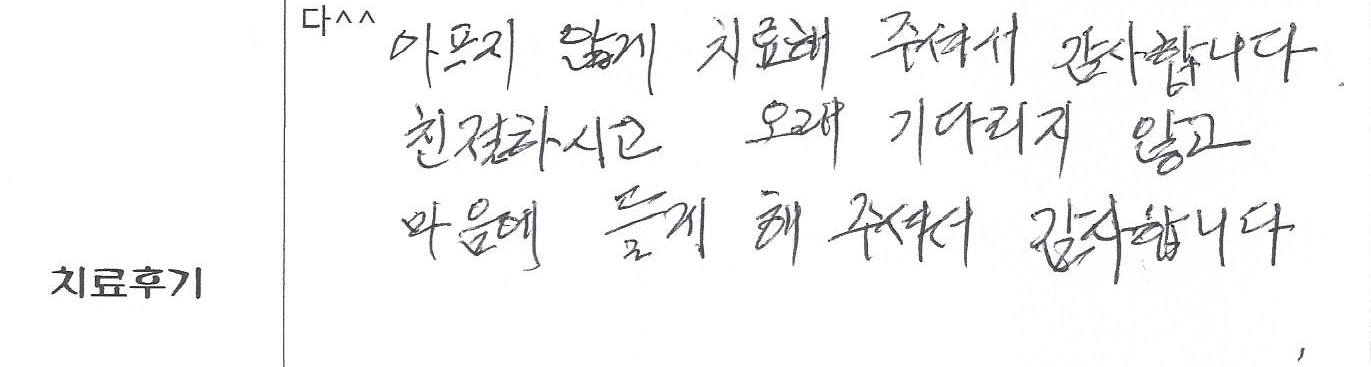 다^^
아프지 않게 치료해 주셔서 감사합니다
친절하시고 오래 기다리지 않고
마음에 들게 해 주셔서 감사합니다
치료후기